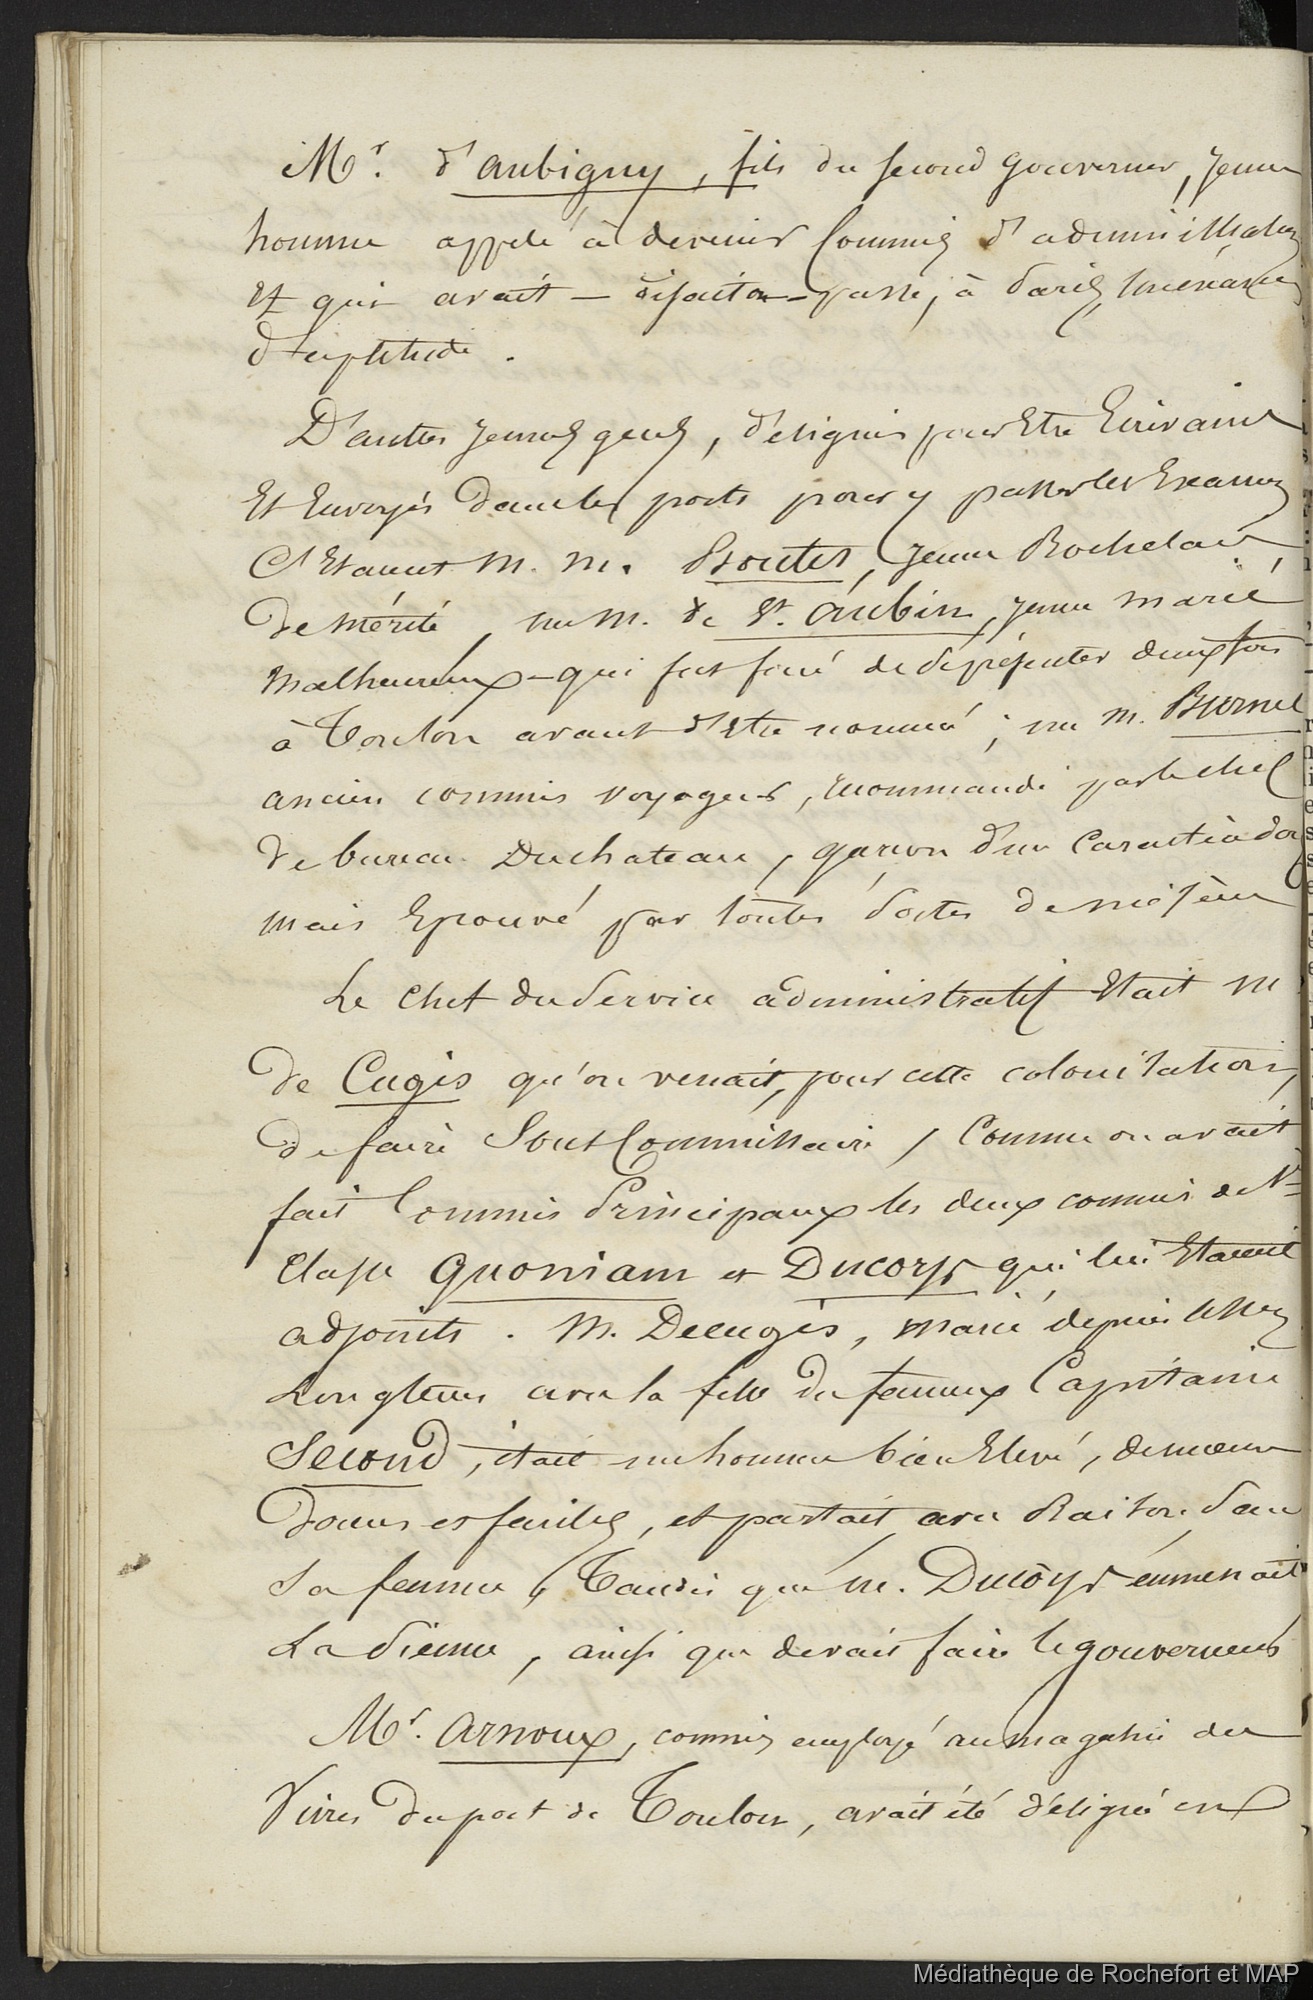 Mr. d'aubigny, fils du second gouverneur, jeune
homme appelé à devenir Commis d'administration
Et qui avait – disait on – passé, à Paris, son examen
d'aptitude.
D'autres jeunes gens, désignés pour Etre Ecrivains
Et Envoyés dans les ports pour y passer les Examens
C'Etaient M. M. Boutet, jeune Rochelais
de mérite, un M. de St. Aubin, jeune marié
malheureux – qui fut forcé de se présenter deux fois
à Toulon avant d'être nommé ; un M. Burnel
ancien commis voyageur, recommandé par le chef
de bureau Duchateau, garçon d'un Caractère d'or
mais Eprouvé par toutes sortes de misères
Le Chef du Service administratif Etait M
de Cugis qu'on venait, pour cette colonisation,
de faire Sous Commissaire, Comme on avait
fait Commis Principaux les deux commis de 1re
Classe Quoniam et Ducorps qui lui Etaient
adjoints. M. Decugis, marié depuis assez
Longtems avec la fille du fameux Capitaine
Second, était un homme bien Elevé, de mœurs
douces et faciles, et partait avec Raison, sans
Sa femme, Tandis que M. Ducorps emmenait
La Sienne, ainsi que devait faire le gouverneur
Mr. Arnoux, commis employé au magasin des
Vivres du port de Toulon, avait été désigné en
Médiathèque de Rochefort et MAP